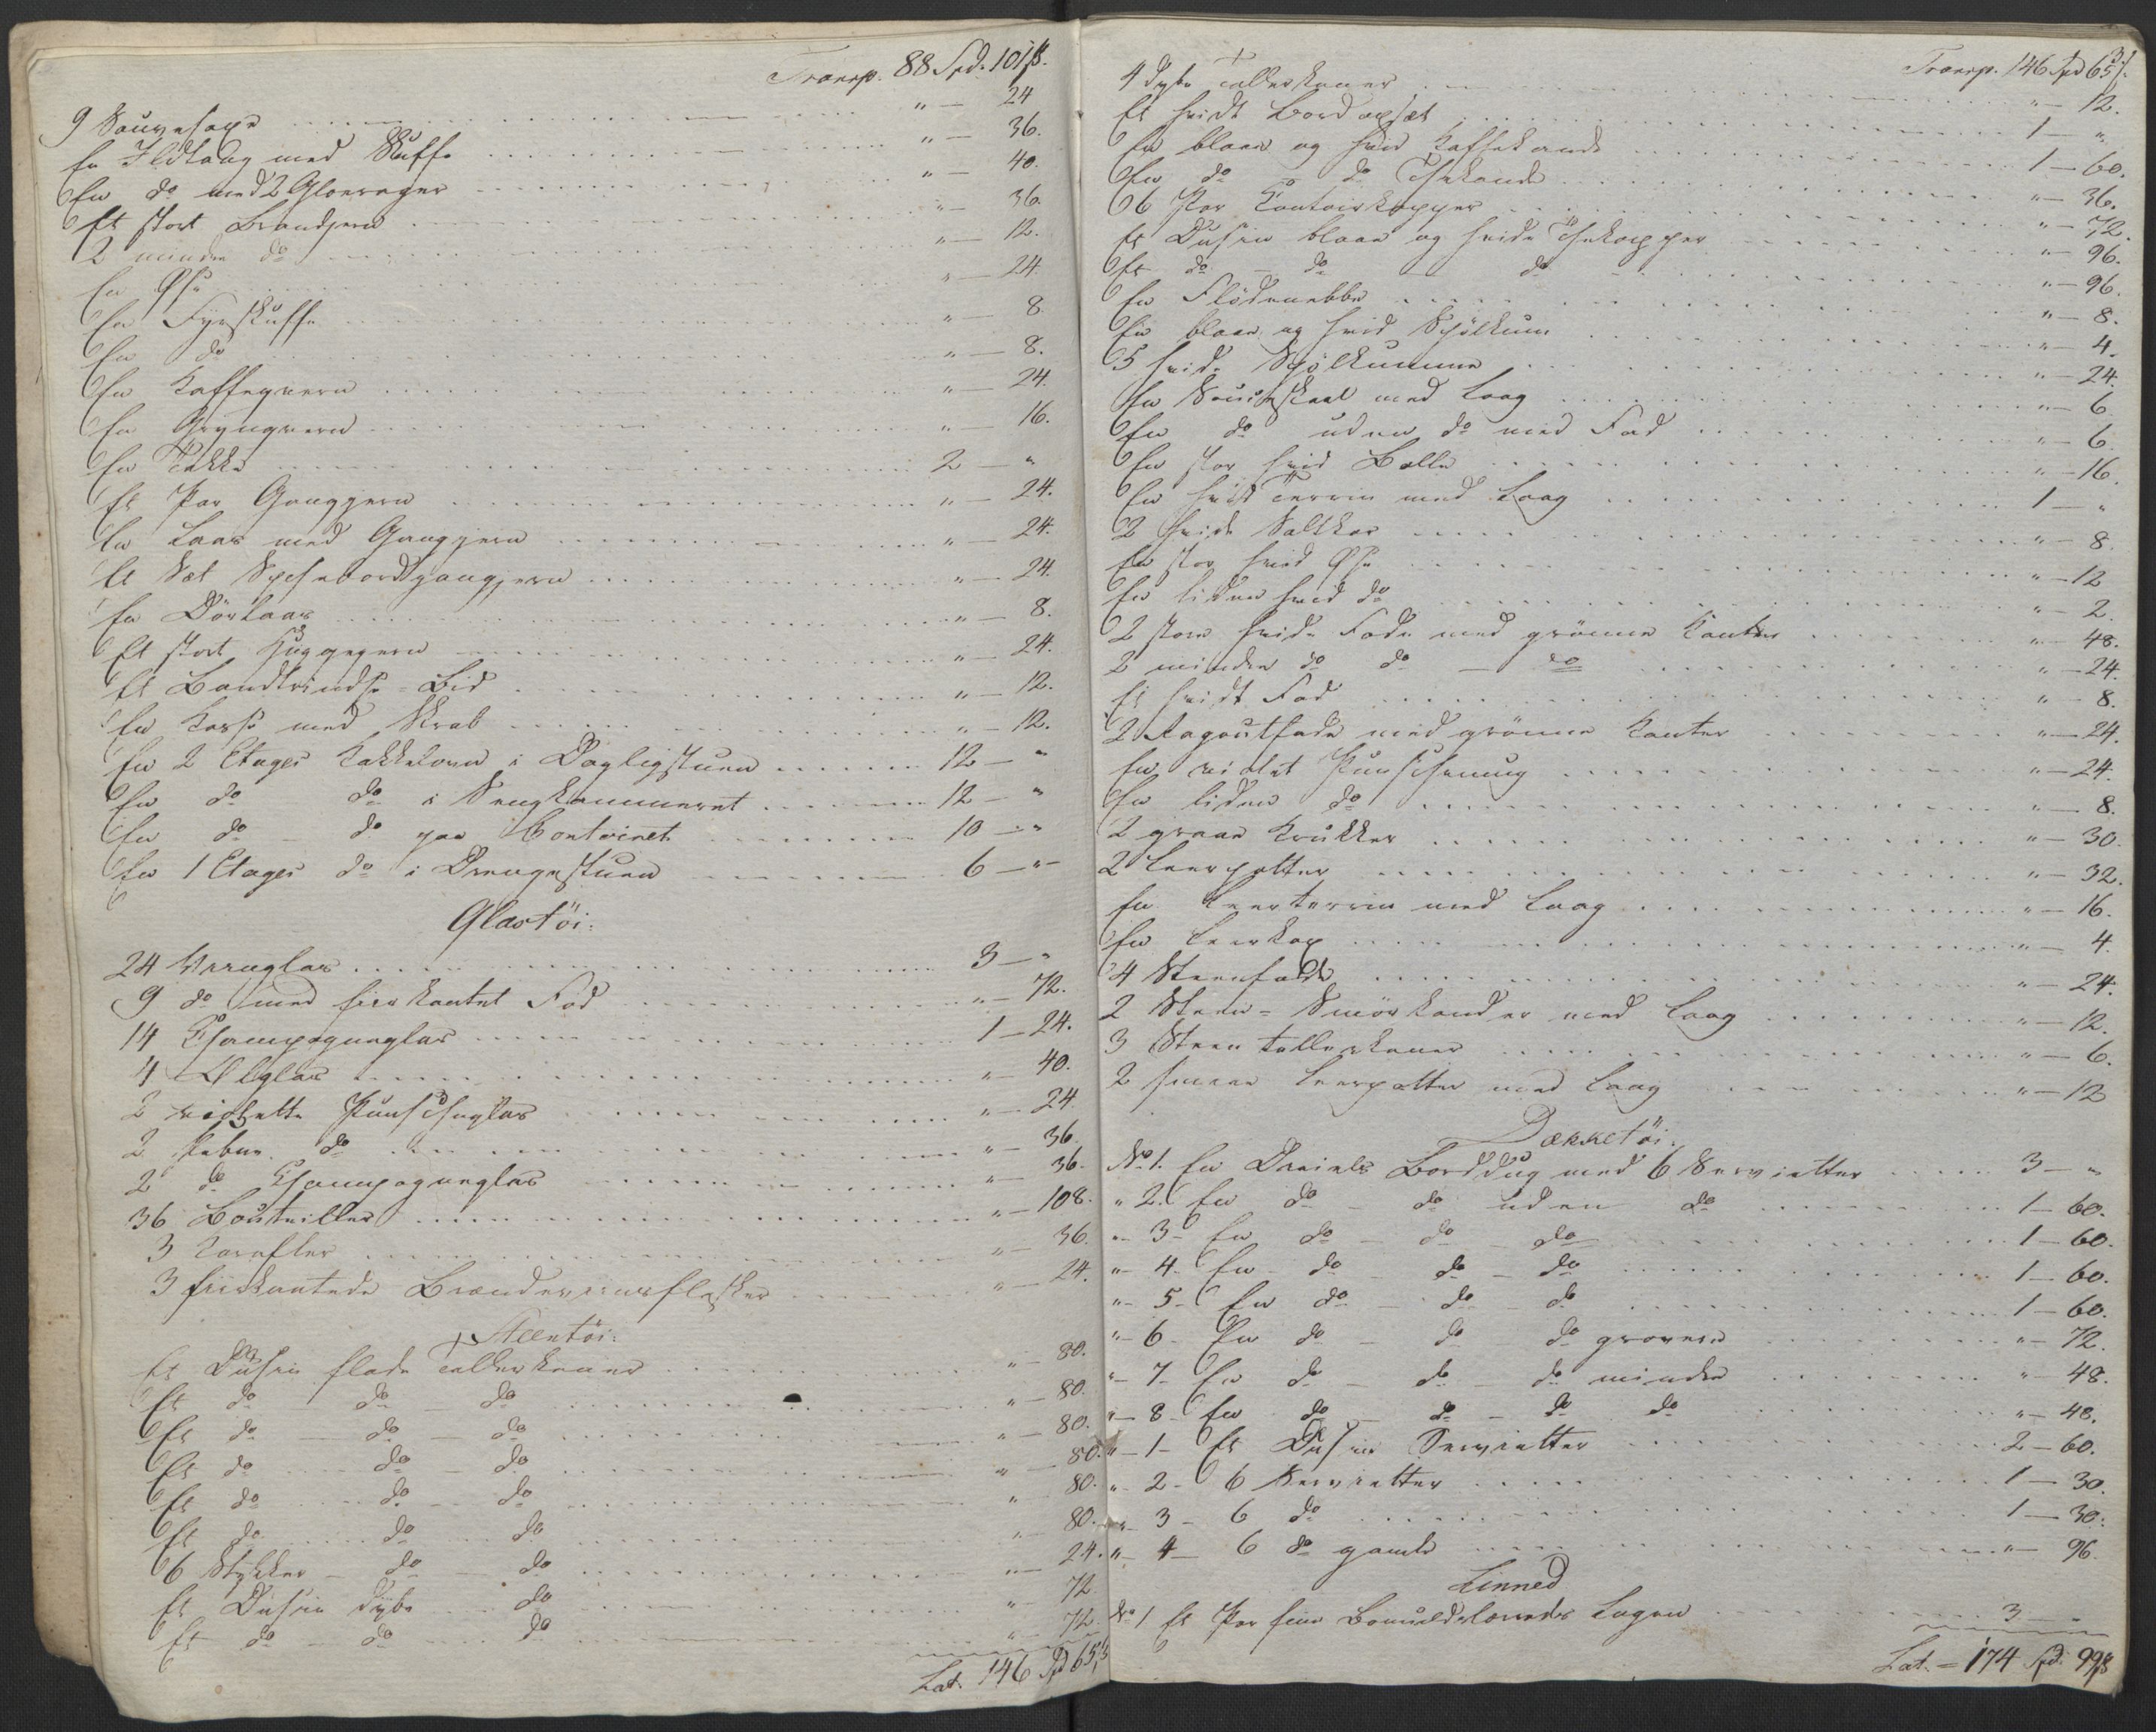 Transp. 88 Spd. 101 ß.
9 Sauvesaxe " — 24
En Ildtang med Skuffe " — 36.
En do med 2 Gloerager " — 40.
Et stort Brandjern " — 36.
2 mindre do " — 12.
En Øse " — 24.
En Fyrskuffe " — 8.
En do " — 8.
En Kaffeqvern " — 24.
En Grynqvern " — 16.
En Takke 2 — "
Et Par Gangjern " — 24.
En Laas med Gangjern " — 24.
Et Sæt Spisebordsgangjern " — 24.
En Dörlaas " — 8.
Et stort Huggejern " — 24.
Et Bandtrindse-Bid " — 12.
En Kasse med Skrab " — 12.
En 2 Etages Kakkelovn i Dagligstuen 12 — "
En do do i Sengkammeret 12 — "
En do — do paa Contoiret 10 — "
En 1 Etages do i Drengestuen 6 — "
Glastöi:
24 Viinglas 3 — "
9 do med fiirkantet Fod " — 72.
14 Champagneglas 1 — 24.
4 Ölglas " — 40.
2 violette Punscheglas " — 24
2 do " — 36.
2 do Champagneglas " — 36.
36 Bouteiller " — 108.
3 Karafler " — 36.
3 fiirkantede Brændeviinsflasker " — 24.
Steentöi:
Et Dusin flade Tallerkener " — 80.
Et do do — do " — 80.
Et do — do — do " — 80.
Et do do — do " — 80.
Et do do — do " 80.
Et do do — do " — 80.
6 Stykker — do — do " — 24.
Et Dusin dybe do " — 72.
Et do — do do " — 72.
Lat. 146 Spd 65 ß
Transp. 146 Spd 65 ß.
4 dybe Tallerkener " — 12.
Et hvidt Bordopsæt 1 — "
En blaa og hvid Kaffekande 1 — 60.
En do — do Thekande " — 36.
6 Par Contoirkopper " — 72.
Et Dusin blaae og hvide Thekopper " — 96.
Et do — do — do " — 96.
En Flödenebbe " — 8.
En blaa og hvid Spölkum " — 4.
5 hvide Spölkumme " — 24.
En Sauceskaal med Laag " — 6.
En do uden do med Fad " — 6.
En stor hvid Bolle " — 16.
En hvid Terrin med Laag 1 — "
2 hvide Saltkar " — 8.
En stor hvid Øse " — 12
En liden hvid do " — 2.
2 store hvide Fade med grönne Kanter " — 48.
2 mindre do do — do " — 24.
Et hvidt Fad " — 8.
2 Ragoutfade med grönne Kanter " — 24.
En violet Punschemug " — 24.
En liden do " — 8.
2 graae Krukker " — 30.
2 Leerpotter " — 32.
En Leerterrin med Laag " — 16.
En Leerkop " — 4.
4 Steenfade " — 24.
2 Steen-Smörkander med Laag " — 12.
3 Steentallerkener " — 6.
2 smaae Leerpotter med Laag " — 12
Dækketöi.
No 1. En Dreiels Borddug med 6 Servietter 3 — "
" 2. En do — do uden do 1 — 60.
" 3 — En do — do — do 1 — 60.
" 4. En do — do — do 1 — 60.
" 5 — En do — do — do 1 — 60.
" 6 — En do — do do grovere " — 72.
" 7 — En do — do — do mindre " — 48.
" 8 — En do — do — do do " — 48.
" 1 — Et Dusin Servietter 2 — 60.
" 2 — 6 Servietter 1 — 30.
" 3 — 6 do 1 — 30.
" 4 — 6 do gamle " — 96.
Linned
No 1 Et Par fine Bomuldslærreds Lagen 3 — "
Lat. = 174 Spd. 99 ß